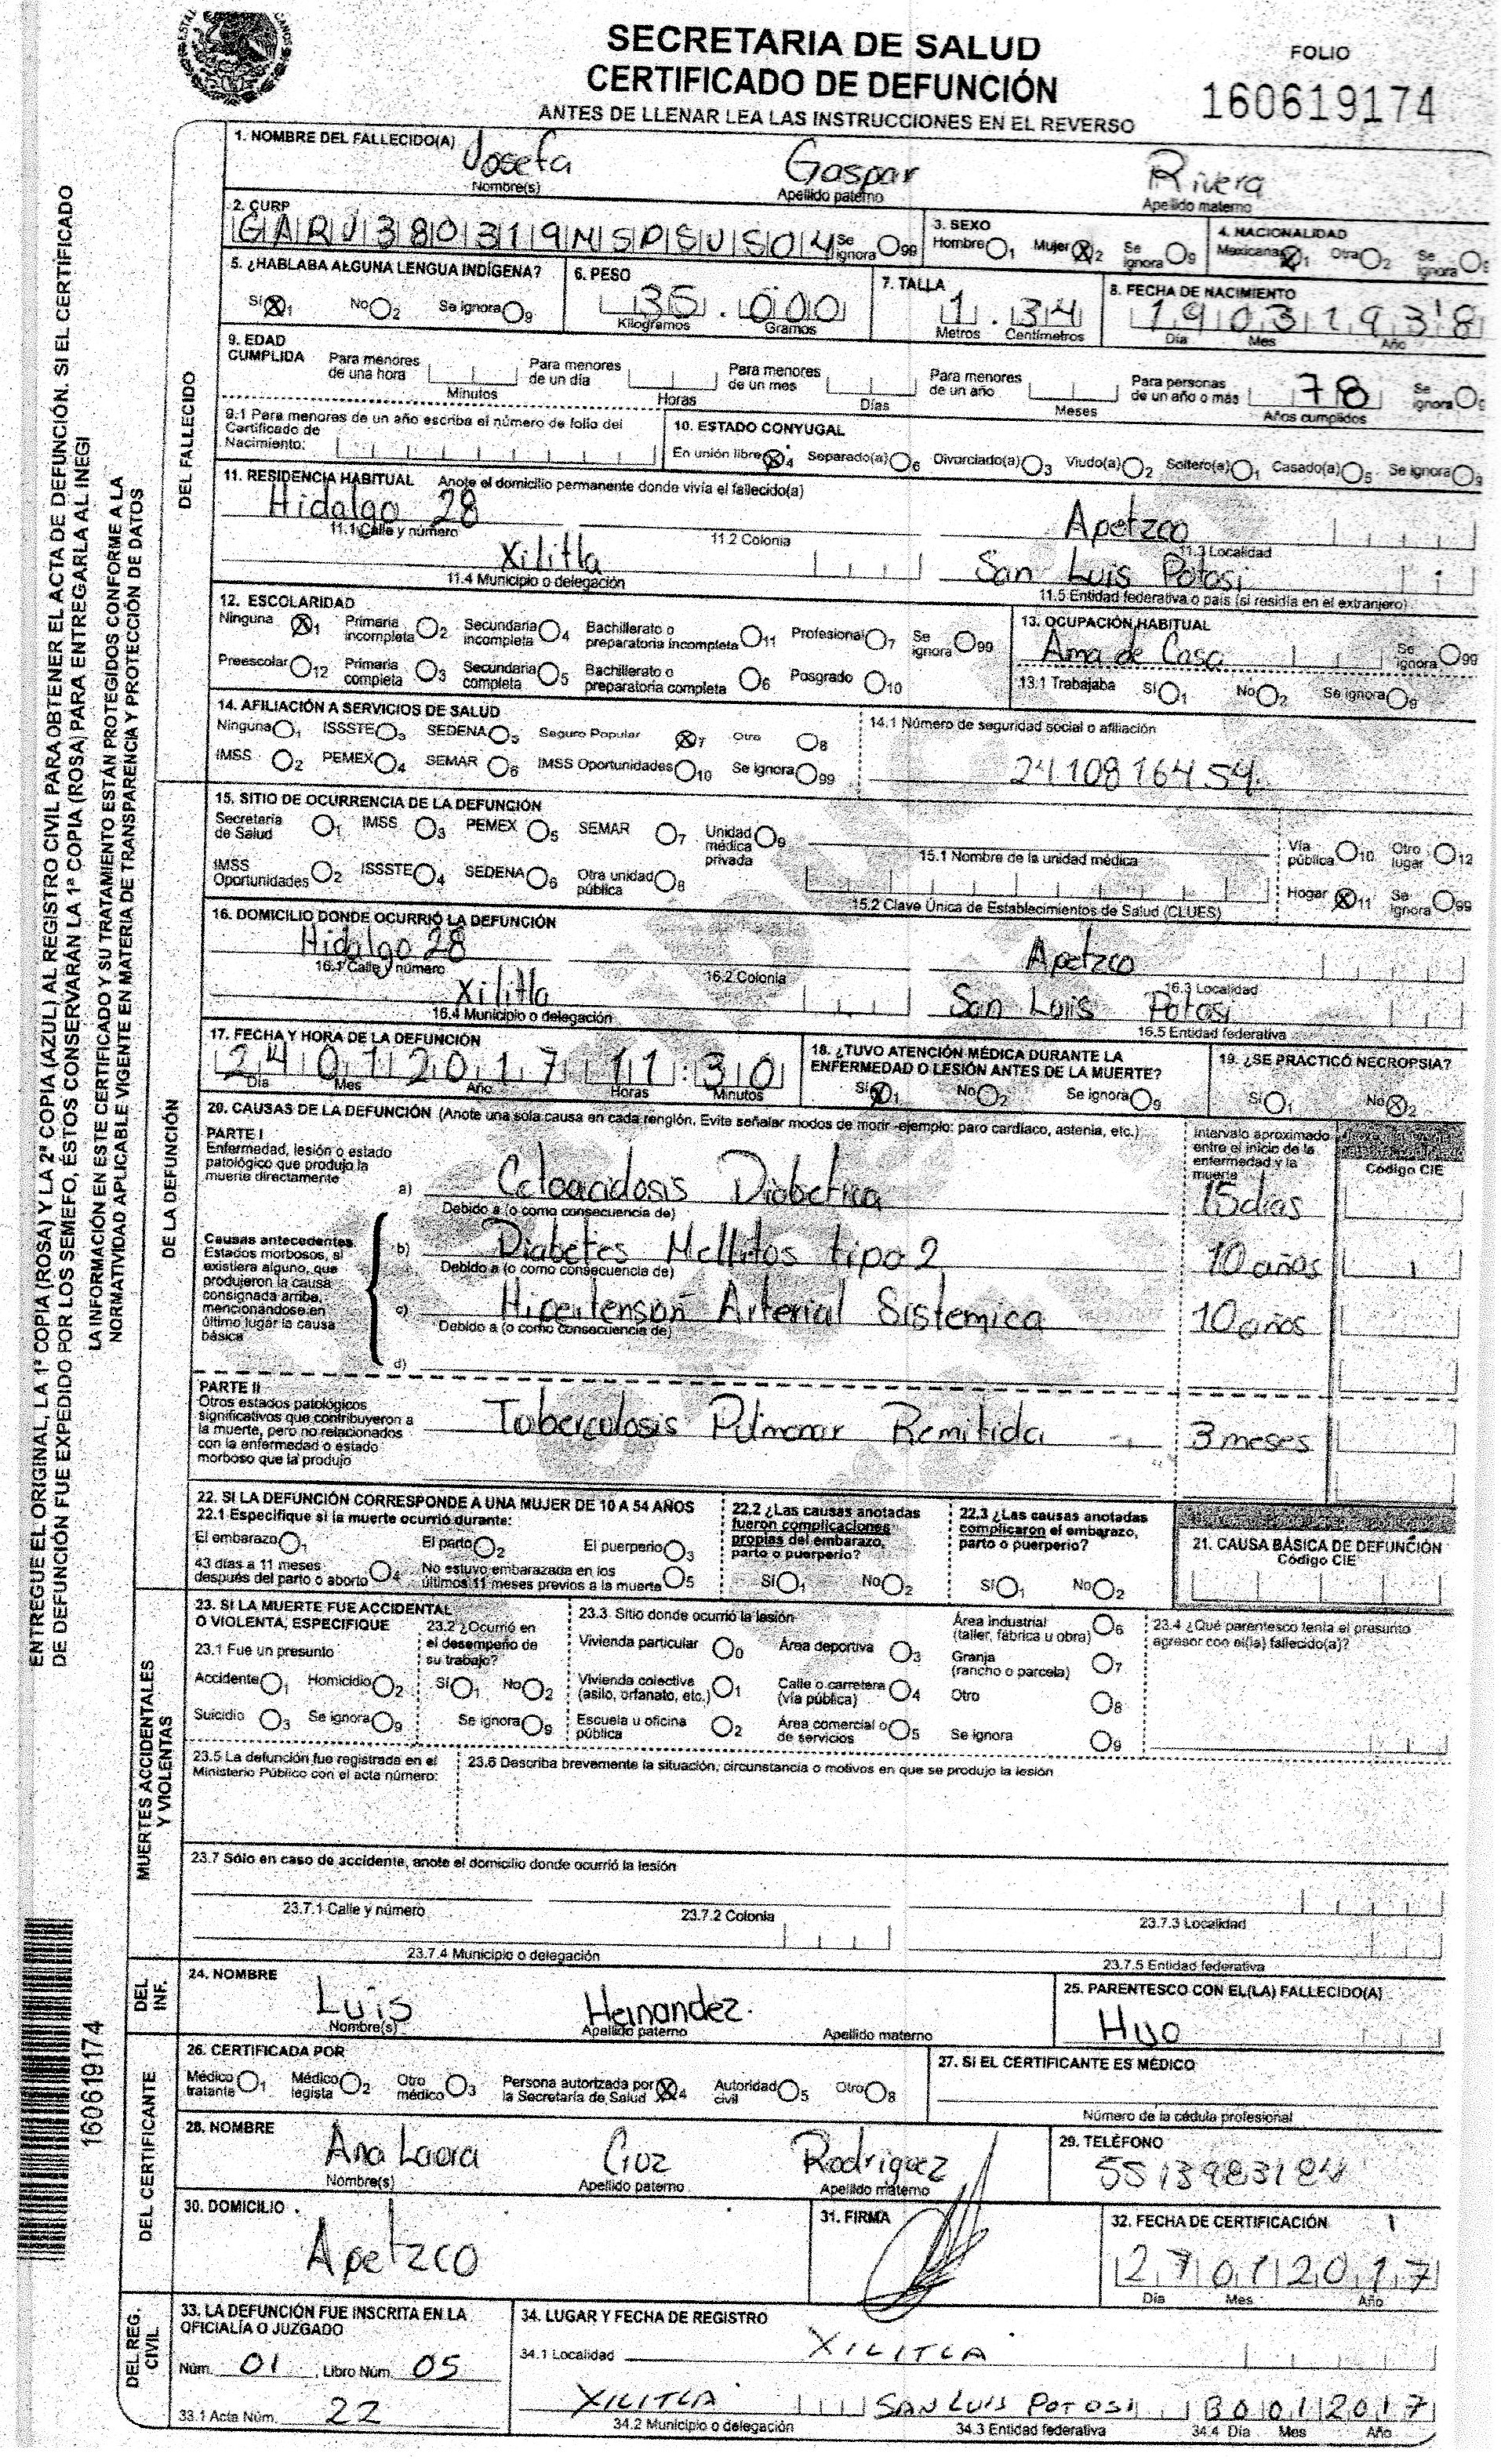 SECRETARIA DE SALUD
CERTIFICADO DE DEFUNCIÓN
ANTES DE LLENAR LEA LAS INSTRUCCIONES EN EL REVERSO
FOLIO
160619174
ENTREGUE EL ORIGINAL, LA 1ª COPIA (ROSA) Y LA 2ª COPIA (AZUL) AL REGISTRO CIVIL PARA OBTENER EL ACTA DE DEFUNCIÓN. SI EL CERTIFICADO
DE DEFUNCIÓN FUE EXPEDIDO POR LOS SEMEFO, ÉSTOS CONSERVARÁN LA 1ª COPIA (ROSA) PARA ENTREGARLA AL INEGI
LA INFORMACIÓN EN ESTE CERTIFICADO Y SU TRATAMIENTO ESTÁN PROTEGIDOS CONFORME A LA
NORMATIVIDAD APLICABLE VIGENTE EN MATERIA DE TRANSPARENCIA Y PROTECCIÓN DE DATOS
DEL FALLECIDO
1. NOMBRE DEL FALLECIDO(A) Josefa Gaspar Rivera
Nombre(s) Apellido paterno Apellido materno
2. CURP
GARJ380319MSPSVS04 Se ignora 99
3. SEXO
Hombre 1 Mujer X 2 Se ignora 9
4. NACIONALIDAD
Mexicana X 1 Otra 2 Se ignora
5. ¿HABLABA ALGUNA LENGUA INDÍGENA?
Sí X 1 No 2 Se ignora 9
6. PESO
35 . 000
Kilogramos Gramos
7. TALLA
1 . 34
Metros Centímetros
8. FECHA DE NACIMIENTO
19 03 1938
Día Mes Año
9. EDAD CUMPLIDA
Para menores de una hora Minutos
Para menores de un día Horas
Para menores de un mes Días
Para menores de un año Meses
Para personas de un año o más 78 Años cumplidos
Se ignora
9.1 Para menores de un año escriba el número de folio del
Certificado de
Nacimiento:
10. ESTADO CONYUGAL
En unión libre X 4 Separado(a) 6 Divorciado(a) 3 Viudo(a) 2 Soltero(a) 1 Casado(a) 5 Se ignora 9
11. RESIDENCIA HABITUAL Anote el domicilio permanente donde vivía el fallecido(a)
Hidalgo 28 Apetzco
11.1 Calle y número 11.2 Colonia 11.3 Localidad
Xilitla San Luis Potosi
11.4 Municipio o delegación 11.5 Entidad federativa o país (si residía en el extranjero)
12. ESCOLARIDAD
Ninguna X 1 Primaria incompleta 2 Secundaria incompleta 4 Bachillerato o preparatoria incompleta 11 Profesional 7 Se ignora 99
Preescolar 12 Primaria completa 3 Secundaria completa 5 Bachillerato o preparatoria completa 6 Posgrado 10
13. OCUPACIÓN HABITUAL
Ama de Casa Se ignora 99
13.1 Trabajaba Sí 1 No 2 Se ignora 9
14. AFILIACIÓN A SERVICIOS DE SALUD
Ninguna 1 ISSSTE 3 SEDENA 5 Seguro Popular X 7 Otro 8
IMSS 2 PEMEX 4 SEMAR 6 IMSS Oportunidades 10 Se ignora 99
14.1 Número de seguridad social o afiliación
2410816454
DE LA DEFUNCIÓN
15. SITIO DE OCURRENCIA DE LA DEFUNCIÓN
Secretaría de Salud 1 IMSS 3 PEMEX 5 SEMAR 7 Unidad médica privada 9
15.1 Nombre de la unidad médica
Vía pública 10 Otro lugar 12
IMSS Oportunidades 2 ISSSTE 4 SEDENA 6 Otra unidad pública 8
15.2 Clave Única de Establecimientos de Salud (CLUES)
Hogar X 11 Se ignora 99
16. DOMICILIO DONDE OCURRIÓ LA DEFUNCIÓN
Hidalgo 28 Apetzco
16.1 Calle y número 16.2 Colonia 16.3 Localidad
Xilitla San Luis Potosi
16.4 Municipio o delegación 16.5 Entidad federativa
17. FECHA Y HORA DE LA DEFUNCIÓN
24 01 2017 11:30
Día Mes Año Horas Minutos
18. ¿TUVO ATENCIÓN MÉDICA DURANTE LA
ENFERMEDAD O LESIÓN ANTES DE LA MUERTE?
Sí X 1 No 2 Se ignora 9
19. ¿SE PRACTICÓ NECROPSIA?
Sí 1 No X 2
20. CAUSAS DE LA DEFUNCIÓN (Anote una sola causa en cada renglón. Evite señalar modos de morir -ejemplo: paro cardiaco, astenia, etc.)
PARTE I
Enfermedad, lesión o estado
patológico que produjo la
muerte directamente
Intervalo aproximado
entre el inicio de la
enfermedad y la
muerte
Código CIE
a) Cetoacidosis Diabetica 15 dias
Debido a (o como consecuencia de)
Causas antecedentes
Estados morbosos, si
existiera alguno, que
produjeron la causa
consignada arriba,
mencionándose en
último lugar la causa
básica
b) Diabetes Mellitos tipo 2 10 años
Debido a (o como consecuencia de)
c) Hipertension Arterial Sistemica 10 años
Debido a (o como consecuencia de)
d)
PARTE II
Otros estados patológicos
significativos que contribuyeron a
la muerte, pero no relacionados
con la enfermedad o estado
morboso que la produjo
Tuberculosis Pulmonar Remitida 3 meses
22. SI LA DEFUNCIÓN CORRESPONDE A UNA MUJER DE 10 A 54 AÑOS
22.1 Especifique si la muerte ocurrió durante:
El embarazo 1 El parto 2 El puerperio 3
43 días a 11 meses después del parto o aborto 4 No estuvo embarazada en los últimos 11 meses previos a la muerte 5
22.2 ¿Las causas anotadas
fueron complicaciones
propias del embarazo,
parto o puerperio?
Sí 1 No 2
22.3 ¿Las causas anotadas
complicaron el embarazo,
parto o puerperio?
Sí 1 No 2
21. CAUSA BÁSICA DE DEFUNCIÓN
Código CIE
MUERTES ACCIDENTALES
Y VIOLENTAS
23. SI LA MUERTE FUE ACCIDENTAL
O VIOLENTA, ESPECIFIQUE
23.1 Fue un presunto
Accidente 1 Homicidio 2
Suicidio 3 Se ignora 9
23.2 ¿Ocurrió en
el desempeño de
su trabajo?
Sí 1 No 2
Se ignora 9
23.3. Sitio donde ocurrió la lesión
Vivienda particular 0 Área deportiva 3 Área industrial (taller, fábrica u obra) 6
Vivienda colectiva (asilo, orfanato, etc.) 1 Calle o carretera (vía pública) 4 Granja (rancho o parcela) 7
Otro 8
Escuela u oficina pública 2 Área comercial o de servicios 5 Se ignora 9
23.4 ¿Qué parentesco tenía el presunto
agresor con el(la) fallecido(a)?
23.5 La defunción fue registrada en el
Ministerio Público con el acta número:
23.6 Describa brevemente la situación, circunstancia o motivos en que se produjo la lesión
23.7 Sólo en caso de accidente, anote el domicilio donde ocurrió la lesión
23.7.1 Calle y número 23.7.2 Colonia 23.7.3 Localidad
23.7.4 Municipio o delegación 23.7.5 Entidad federativa
DEL INF.
24. NOMBRE
Luis Hernandez.
Nombre(s) Apellido paterno Apellido materno
25. PARENTESCO CON EL(LA) FALLECIDO(A)
HIJO
160619174
DEL CERTIFICANTE
26. CERTIFICADA POR
Médico tratante 1 Médico legista 2 Otro médico 3 Persona autorizada por la Secretaría de Salud X 4 Autoridad civil 5 Otro 8
27. SI EL CERTIFICANTE ES MÉDICO
Número de la cédula profesional
28. NOMBRE
Ana Laura Cruz Rodriguez
Nombre(s) Apellido paterno Apellido materno
29. TELÉFONO
5513983184
30. DOMICILIO
Apetzco
31. FIRMA
32. FECHA DE CERTIFICACIÓN
27 01 2017
Día Mes Año
DEL REG. CIVIL
33. LA DEFUNCIÓN FUE INSCRITA EN LA
OFICIALÍA O JUZGADO
Núm. 01 Libro Núm. 05
33.1 Acta Núm. 22
34. LUGAR Y FECHA DE REGISTRO
34.1 Localidad XILITLA
XILITLA SAN LUIS POTOSI 30 01 2017
34.2 Municipio o delegación 34.3 Entidad federativa 34.4 Día Mes Año